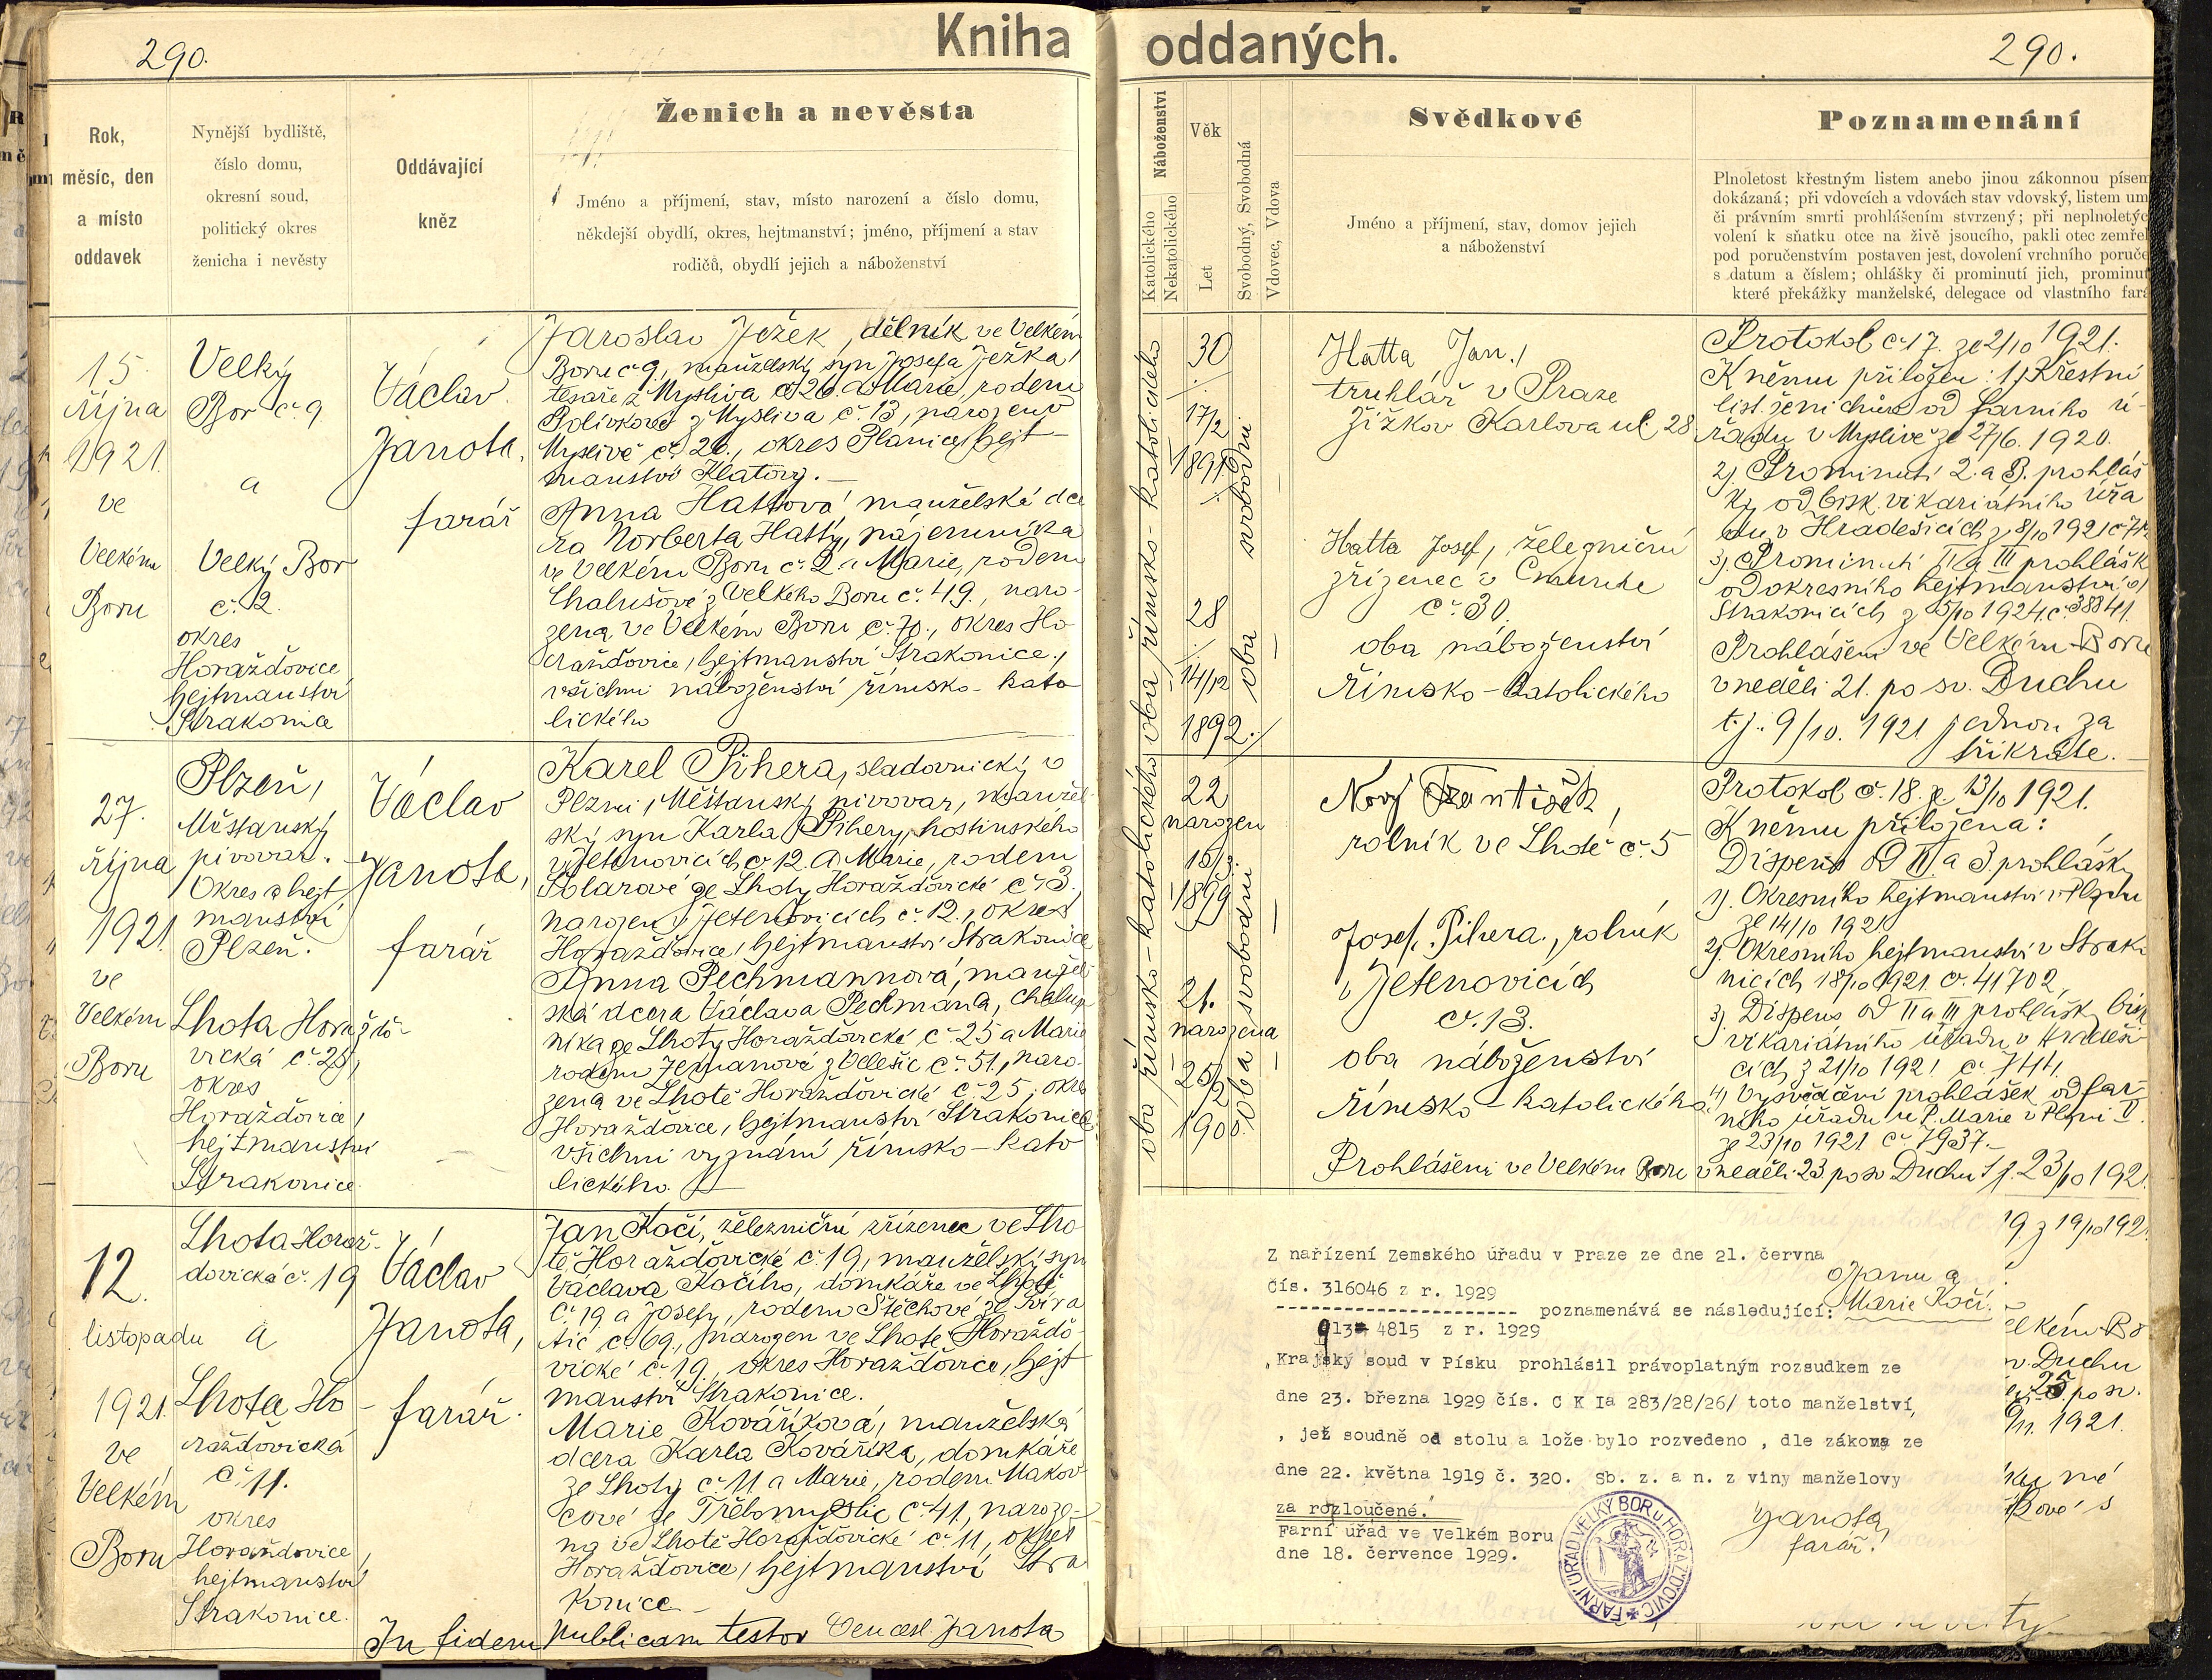 290.
Kniha oddaných.
290.
Rok,
měsíc, den
a místo
oddavek
Nynější bydliště,
číslo domu,
okresní soud,
politický okres
ženicha i nevěsty
Oddávající
kněz
Ženich a nevěsta
Jméno a příjmení, stav, místo narození a číslo domu,
někdejší obydlí, okres, hejtmanství; jméno, příjmení a stav
rodičů, obydlí jejich a náboženství
Náboženství
Katolického
Nekatolického
Věk
Let
Svobodný, Svobodná
Vdovec, Vdova
Svědkové
Jméno a příjmení, stav, domov jejich
a náboženství
Poznamenání
Plnoletost křestným listem anebo jinou zákonnou písem
dokázaná; při vdovcích a vdovách stav vdovský, listem um
či právním smrti prohlášením stvrzený; při neplnoletýc
volení k sňatku otce na živě jsoucího, pakli otec zemřel
pod poručenstvím postaven jest, dovolení vrchního poruče
s datum a číslem; ohlášky či prominutí jich, prominut
které překážky manželské, delegace od vlastního fará
15.
října
1921
ve
Velkém
Boru
Velký
Bor č. 9
a
Velký Bor
č. 2.
okres
Horažďovice
hejtmanství
Strakonice
Václav
Janota,
farář
Jaroslav Ježek, dělník ve Velkém
Boru č 9, manželský syn Josefa Ježka,
tesaře z Mysliva č 26. a Marie, rodem
Polívkové z Mysliva č. 13, narozený v
Myslivě č. 26., okres Planice, hejt-
manství Klatovy. —
Anna Hattová manželská dce
ra Norberta Hatty, nájemníka
ve Velkém Boru č. 2 a Marie, rodem
Chalušové z Velkého Boru č. 49., naro-
zená ve Velkém Boru č. 70., okres Ho
ražďovice, hejtmanství Strakonice,
všichni náboženství římsko-kato
lického
oba římsko-katolického
30
17/2
1891
28
14/12
1892.
oba svobodni
Hatta Jan,
truhlář v Praze
Žižkov Karlova ul 28
Hatta Josef, železniční
zřízenec v
č. 30.
oba náboženství
římsko-katolického
Protokol č 17. ze 2/10 1921.
K němu přiložen: 1) Křestní
list ženichův od farního ú-
řadu v Myslivě ze 27/6. 1920.
2) Prominutí 2. a 3. prohláš
ky od bisk. vikariátního úřa
du v Hradešicích z 8/10 1921
3) Prominutí II a III prohlášk
od okresního hejtmanství v
Strakonicích z 5/10 1921 č. 38841.
Prohlášeni ve Velkém Boru
v neděli 21. po sv. Duchu
t. j. 9/10. 1921 jednou za
třikráte. —
27.
října
1921
ve
Velkém
Boru
Plzeň,
Měšťanský
pivovar.
Okres a hejt
manství
Plzeň.
Lhota Horažďo-
vická č. 25,
okres
Horažďovice,
hejtmanství
Strakonice.
Václav
Janota,
farář
Karel Pihera, sladovnický v
Plzni, Měšťanský pivovar, manžel-
ský syn Karla Pihery, hostinského
v Jetenovicích č 12. a Marie, rodem
Polarové ze Lhoty Horažďovické č 3.,
narozen v Jetenovicích č. 12., okres
Horažďovice, hejtmanství Strakonice
Anna Pechmannová, manžel
ská dcera Václava Pechmana, chalup
níka ze Lhoty Horažďovické č. 25 a Marie
rodem Zemanové z Velešic č. 51., naro-
zená ve Lhotě Horažďovické č. 25, okres
Horažďovice, hejtmanství Strakonice
všichni vyznání římsko-kato
lického.
oba římsko-katolického
22
narozen
15/3.
1899
21.
narozena
25/2
1900.
oba svobodni
Nový František,
rolník ve Lhotě č. 5
Josef Pihera, rolník
v Jetenovicích
č. 13.
oba náboženství
římsko-katolického.
Protokol č. 18. ze 13/10 1921.
K němu přiložena:
Dispens od II. a 3. prohlášky
1). Okresního hejtmanství v Plzni
ze 14/10 1921
2). Okresního hejtmanství v Strako
nicích 18/10 1921 č. 41702,
3) Dispens od II a III prohlášk bisk
vikariátního úřadu v Hradeši-
cích z 21/10 1921 č. 744.
4) Vysvědčení prohlášek od far-
ního úřadu u P. Marie v Plzni II.
ze 23/10 1921 č. 7937. —
Prohlášeni ve Velkém Boru v neděli 23. po sv Duchu t. j. 23/10 1921.
12.
listopadu
1921.
ve
Velkém
Boru
Lhota Horaž-
dovická č. 19
a
Lhota Ho-
ražďovická
č. 11.
okres
Horažďovice,
hejtmanství
Strakonice.
Václav
Janota,
farář.
Jan Kočí, železniční zřízenec ve Lho
tě Horažďovické č. 19., manželský syn
Václava Kočího, domkáře ve Lhotě
č. 19 a Josefy, rodem Stěchové ze Svira
tic č. 69., narozen ve Lhotě Horažďo-
vické č. 19., okres Horažďovice, hejt
manství Strakonice.
Marie Kováříková, manželská
dcera Karla Kováříka, domkáře
ze Lhoty č. 11 a Marie, rodem Makov
cové ze Třebomyslic č. 41, naroze-
na ve Lhotě Horažďovické č. 11, okres
Horažďovice, hejtmanství Stra
konice —
In fidem publicam testor Vencesl. Janota
19 z 19/10 192
Z nařízení Zemského úřadu v Praze ze dne 21. června
čís. 316046 z r. 1929
poznamenává se následující:
o Janu a
Marii Kočí.
913 4815 z r. 1929
Krajský soud v Písku prohlásil právoplatným rozsudkem ze
dne 23. března 1929 čís. C K Ia 283/28/26/ toto manželství,
, jež soudně od stolu a lože bylo rozvedeno , dle zákona ze
dne 22. května 1919 č. 320. Sb. z. a n. z viny manželovy
za rozloučené.
Farní úřad ve Velkém Boru
dne 18. července 1929.
Janota,
farář.
FARNÍ ÚŘAD VELKÝ BOR u HORAŽĎOVIC
elkém Bo
v. Duchu
25 po sv.
1921.